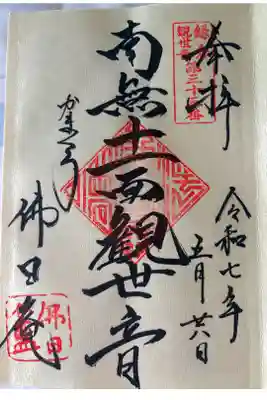 奉拝
鎌倉
観世音第三十三番
令和七年
五月廿八日
南無十一面観世音
かまくら
佛日庵